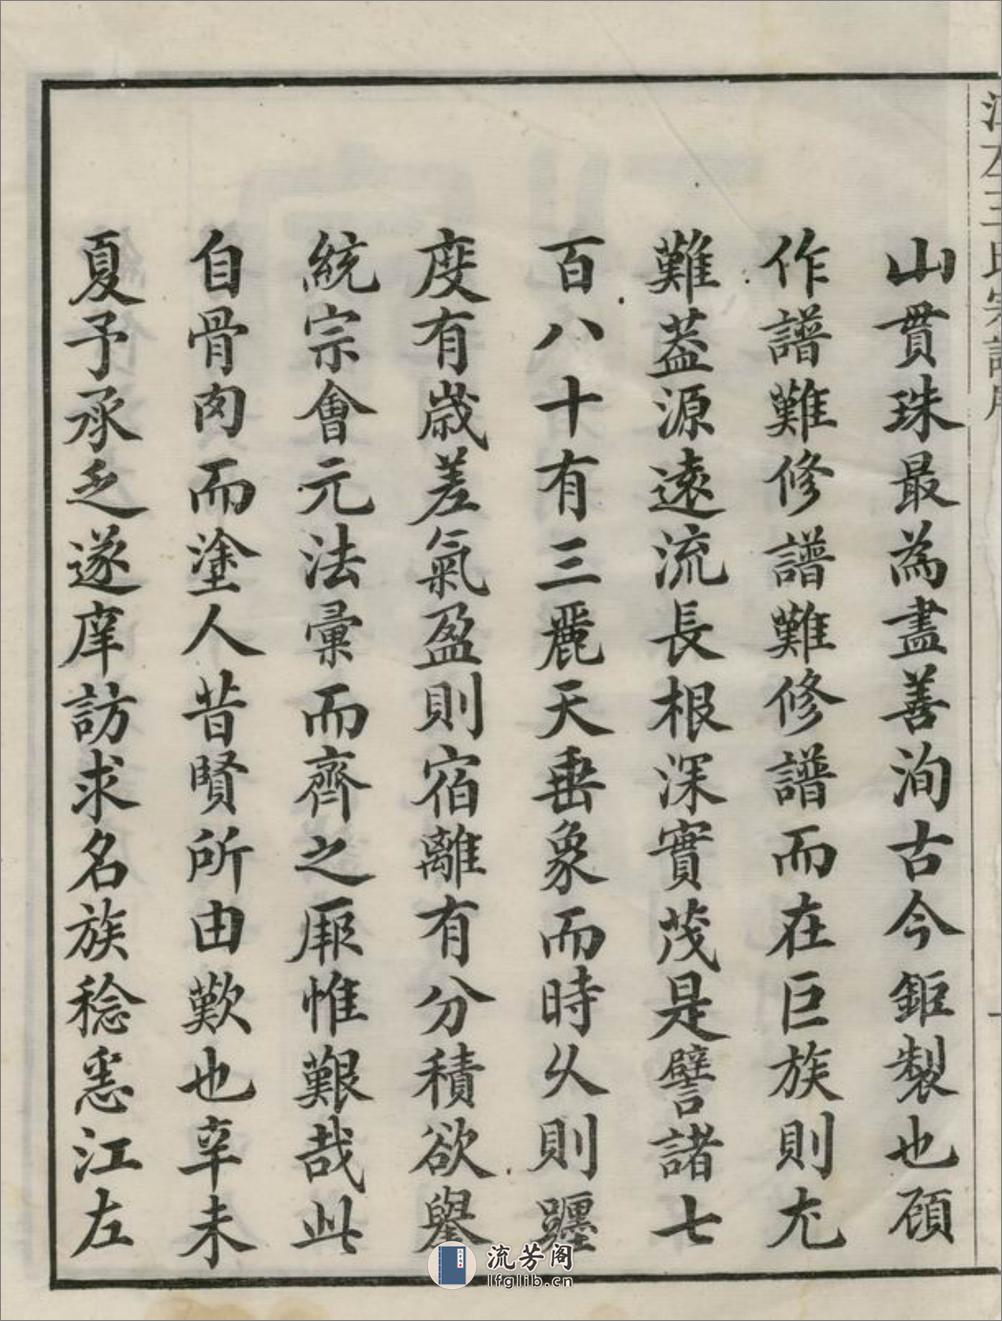 江左王氏宗譜序
山貫珠最為盡善洵古今鉅製也顧
作譜難修譜難修譜而在巨族則尤
難葢源遠流長根深實茂是譬諸七
百八十有三麗天垂象而時久則躔
度有歲差氣盈則宿離有分積欲舉
統宗會元法彙而齊之厥惟艱哉此
自骨肉而塗人昔賢所由歎也辛未
夏予承乏遂庠訪求名族稔悉江左
流芳阁
lfglib.cn